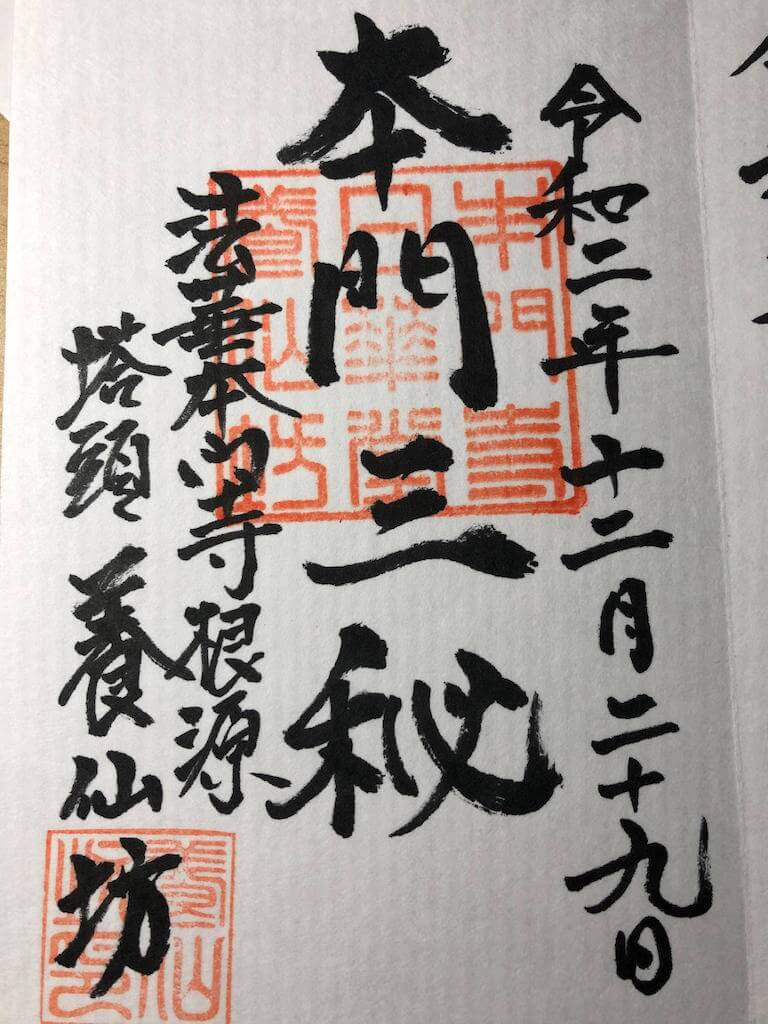 令和二年十二月二十九日
本門三秘
法華本門寺根源
塔頭 養仙坊